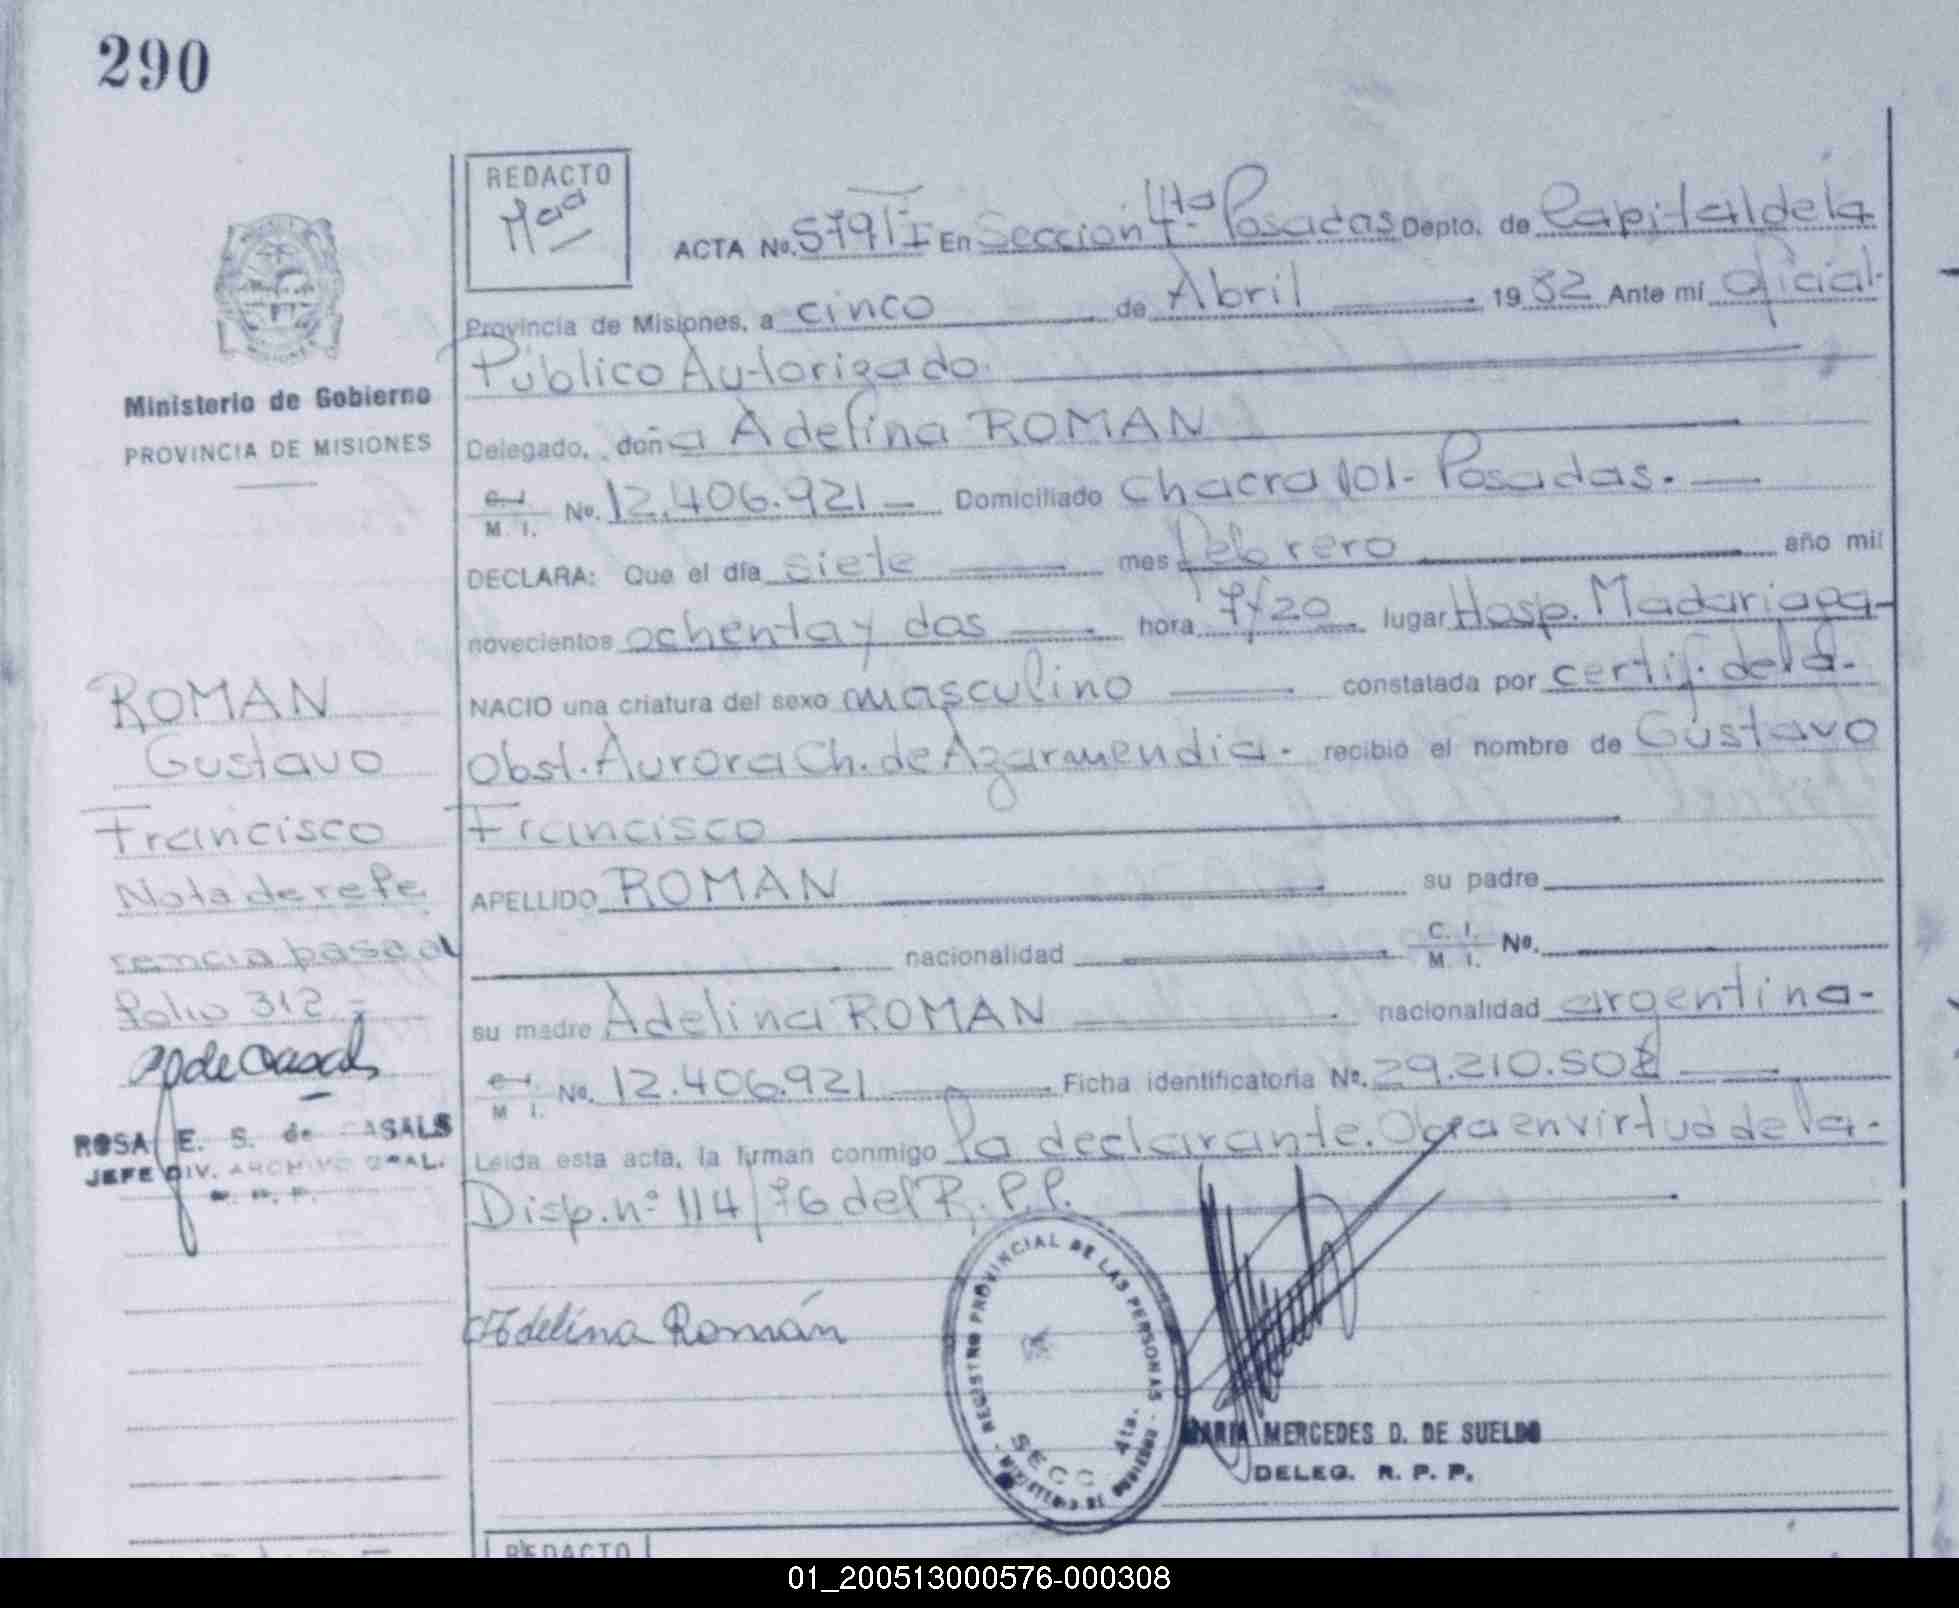 290
REDACTO
ACTA No. 579TI En Sección 4ta Posadas Depto. de Capital de la
Provincia de Misiones, a cinco de Abril 1982 Ante mí Oficial
Público Autorizado
Ministerio de Gobierno
PROVINCIA DE MISIONES
Delegado, doña Adelina ROMAN
C. I. / M. I. No. 12.406.921 Domiciliado Chacra 101 - Posadas.
DECLARA: Que el día siete mes febrero año mil
novecientos ochenta y dos hora 7/20 lugar Hosp. Madariaga
NACIO una criatura del sexo masculino constatada por certif. de la
Obst. Aurora Ch. de Azarmendia. recibió el nombre de Gustavo
Francisco
APELLIDO ROMAN su padre
nacionalidad C. I. / M. I. No.
su madre Adelina ROMAN nacionalidad argentina.
C. I. / M. I. No. 12.406.921 Ficha identificatoria No. 29.210.502
Leída esta acta, la firman conmigo la declarante. Obra en virtud de la
Disp. nº 114/76 del R.P.P.
ROMAN
Gustavo
Francisco
Nota de refe
rencia pasa al
folio 312
ROSA E. S. de CASALS
JEFE DIV. ARCHIVO GRAL.
R. P. P.
Adelina Román
REGISTRO PROVINCIAL DE LAS PERSONAS
SECC 4ta.
MARIA MERCEDES D. DE SUELDO
DELEG. R. P. P.
REDACTO
01_200513000576-000308